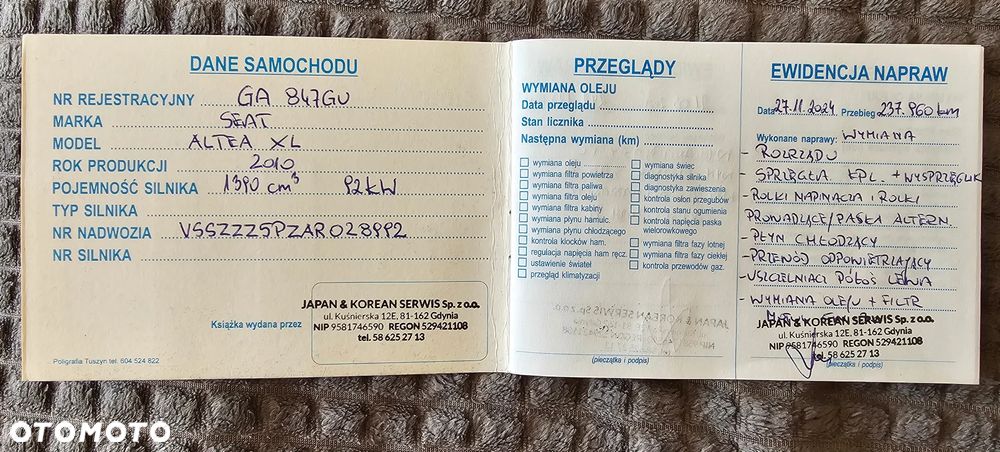 DANE SAMOCHODU
NR REJESTRACYJNY GA 847GU
MARKA SEAT
MODEL ALTEA XL
ROK PRODUKCJI 2010
POJEMNOŚĆ SILNIKA 1390 cm³ 92kW
TYP SILNIKA
NR NADWOZIA VSSZZZ5PZAR028992
NR SILNIKA
Książka wydana przez
JAPAN & KOREAN SERWIS Sp. z o.o.
ul. Kuśnierska 12E, 81-162 Gdynia
NIP 9581746590 REGON 529421108
tel. 58 625 27 13
Poligrafia Tuszyn tel. 604 524 822
PRZEGLĄDY
WYMIANA OLEJU
Data przeglądu
Stan licznika
Następna wymiana (km)
wymiana oleju
wymiana filtra powietrza
wymiana filtra paliwa
wymiana filtru oleju
wymiana filtra kabiny
wymiana płynu hamulc.
wymiana płynu chłodzącego
kontrola klocków ham.
regulacja napięcia ham ręcz.
ustawienie świateł
przegląd klimatyzacji
wymiana świec
diagnostyka silnika
diagnostyka zawieszenia
kontrola osłon przegubów
kontrola stanu ogumienia
kontrola napięcia paska
wielorowkowego
wymiana filtra fazy lotnej
wymiana filtra fazy ciekłej
kontrola przewodów gaz.
(pieczątka i podpis)
EWIDENCJA NAPRAW
Data 27.11.2024 Przebieg 237.960 km
Wykonane naprawy: WYMIANA
- ROZRZĄDU
- SPRZĘGŁA KPL. + WYSPRZĘGLIK
- ROLKI NAPINACZA I ROLKI
PROWADZĄCE/PASKA ALTERN.
- PŁYN CHŁODZĄCY
- PRZEWÓD ODPOWIETRZAJĄCY
- USZCZELNIACZ PÓŁOŚ LEWA
- WYMIANA OLEJU + FILTR
JAPAN & KOREAN SERWIS Sp. z o.o.
ul. Kuśnierska 12E, 81-162 Gdynia
NIP 9581746590 REGON 529421108
tel. 58 625 27 13
(pieczątka i podpis)
OTOMOTO